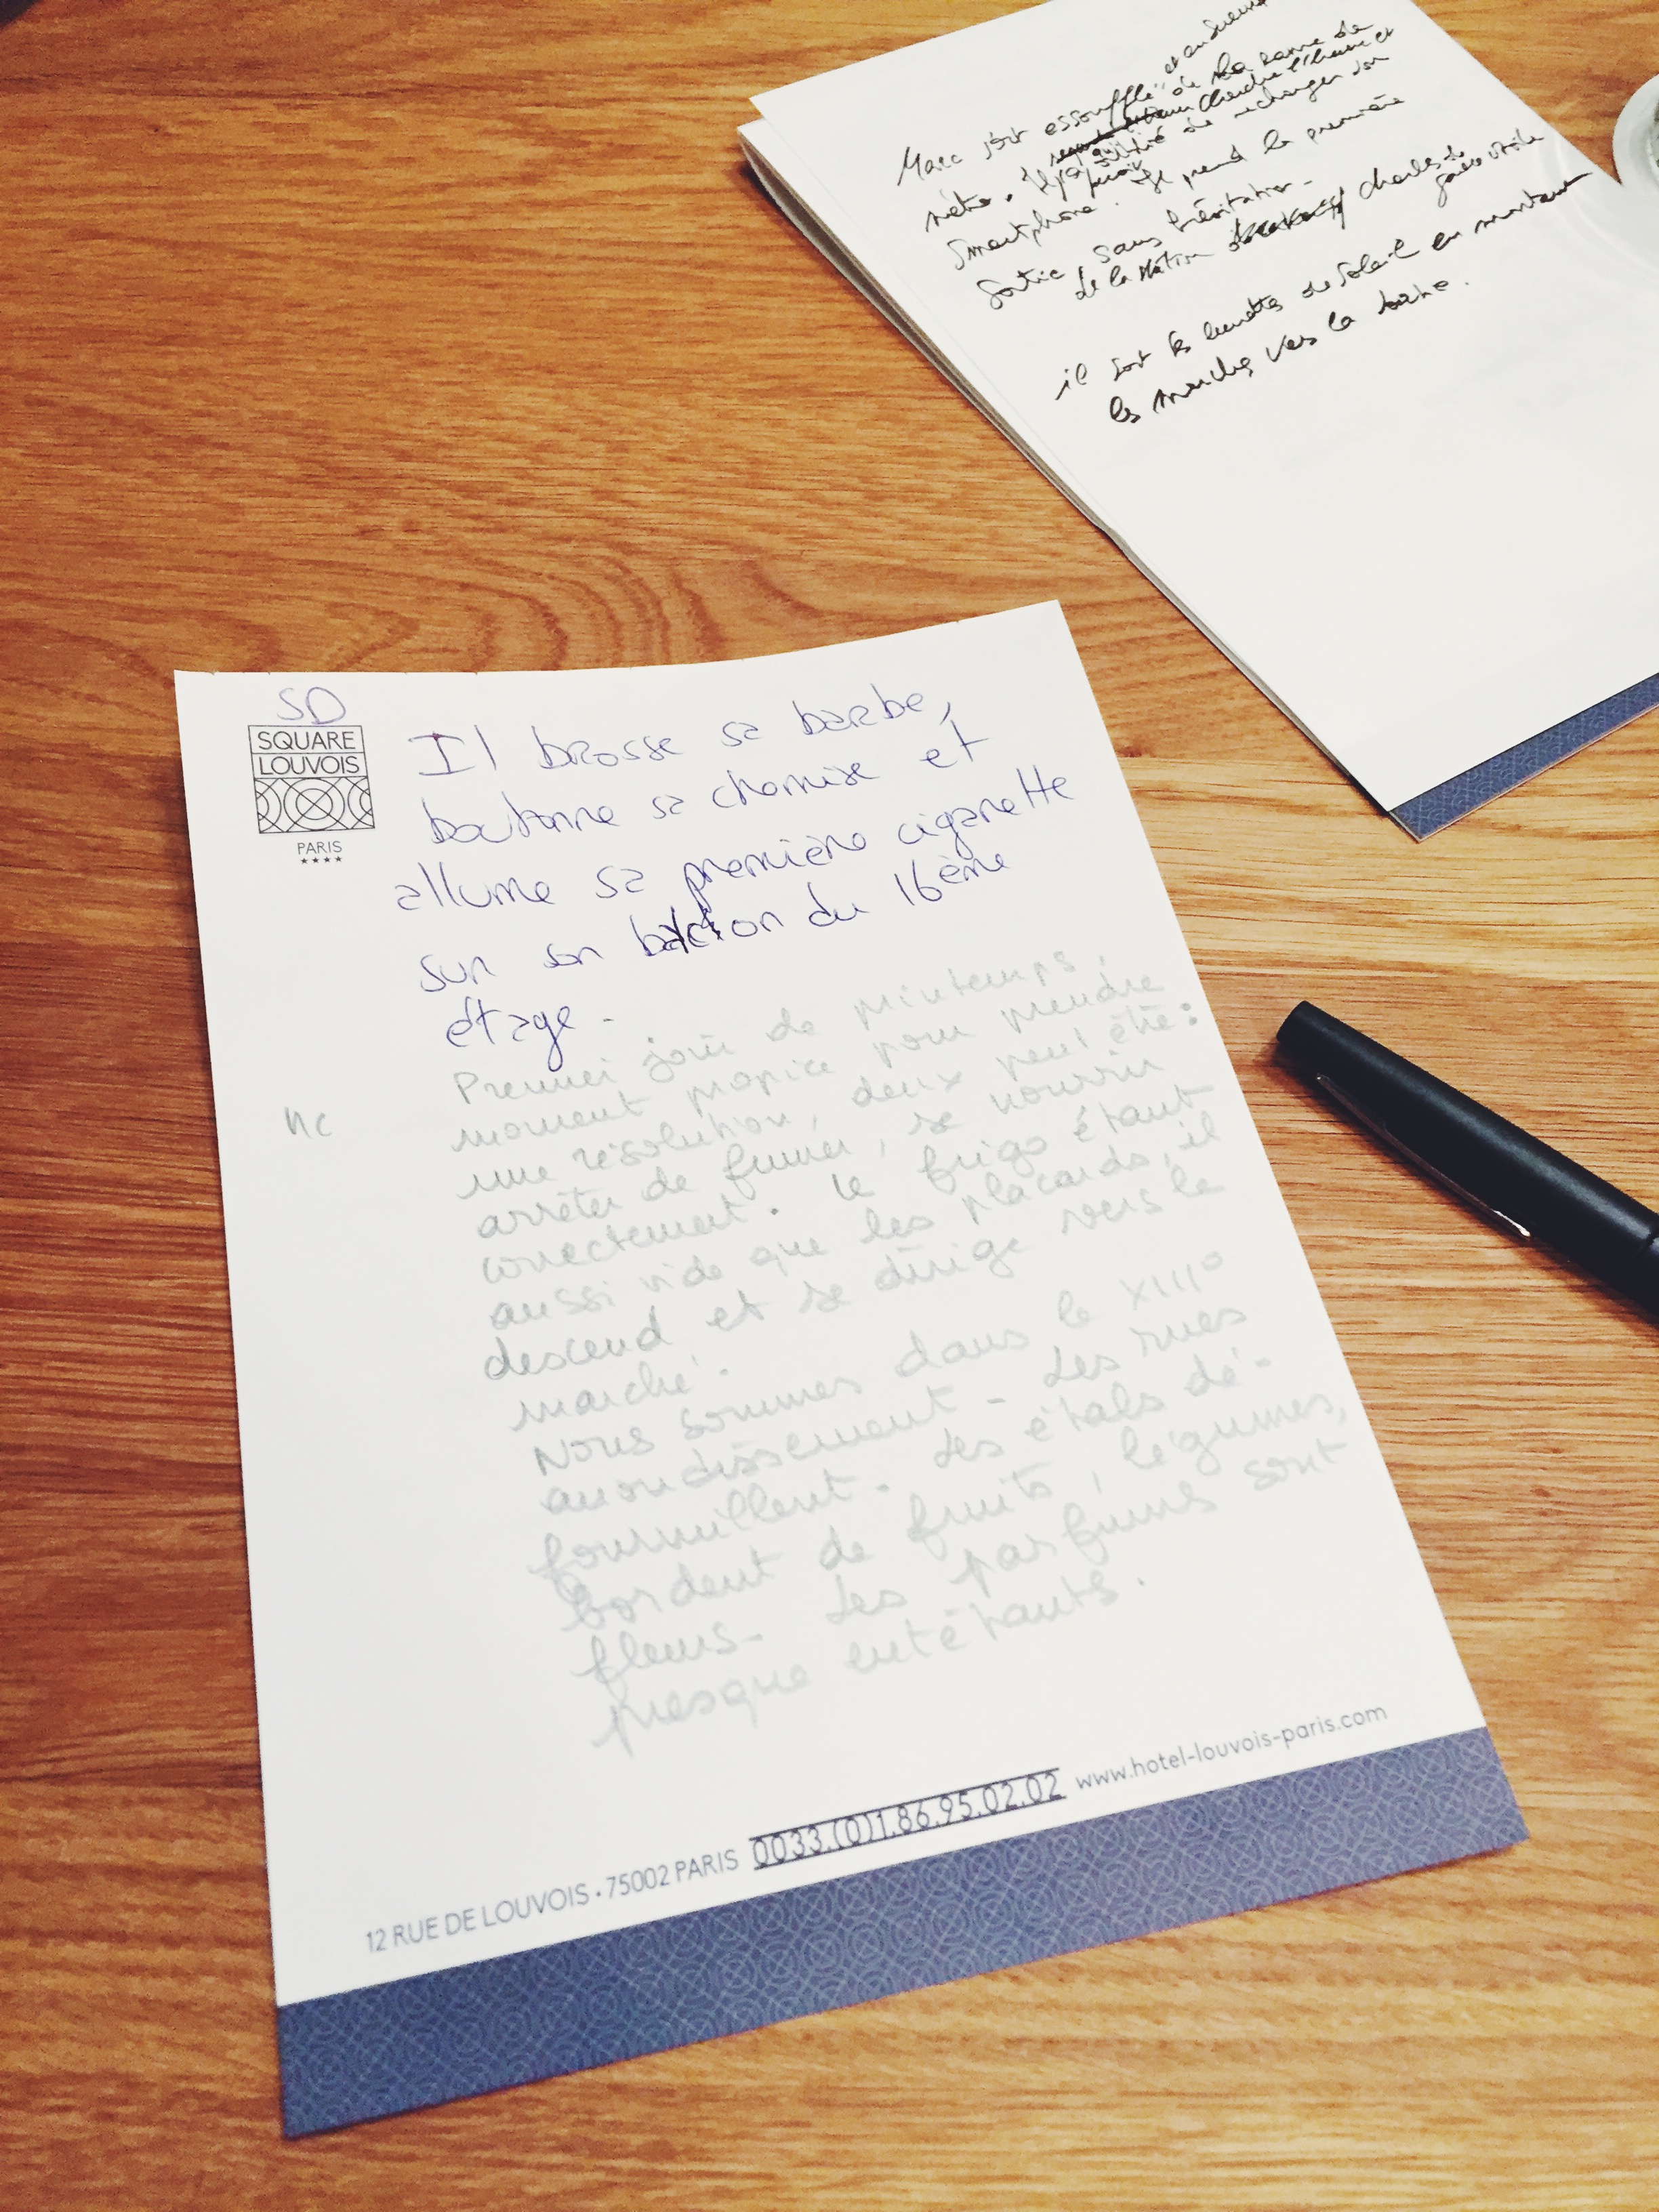 Marc sort essoufflé et en sueur
de la rame de
métro. Il cherche l'heure et
a oublié de recharger son
smartphone. Il prend la première
sortie, sans hésitation.
de la station Charles de
Gaulle étoile
il sort les lunettes de soleil en montant
les marches vers la sortie.
SD
SQUARE
LOUVOIS
PARIS
★★★★
Il brosse sa barbe,
boutonne sa chemise et
allume sa première cigarette
sur son balcon du 16ème
étage.
nc
Premier jour de printemps,
moment propice pour prendre
une résolution, deux peut être :
arrêter de fumer, se nourrir
correctement. Le frigo étant
aussi vide que les placards, il
descend et se dirige vers le
marché.
Nous sommes dans le XIII°
arrondissement - Les rues
fourmillent. Les étals dé-
bordent de fruits, légumes,
fleurs - Les parfums sont
presque entêtants.
12 RUE DE LOUVOIS • 75002 PARIS 0033.(0)1.86.95.02.02 www.hotel-louvois-paris.com